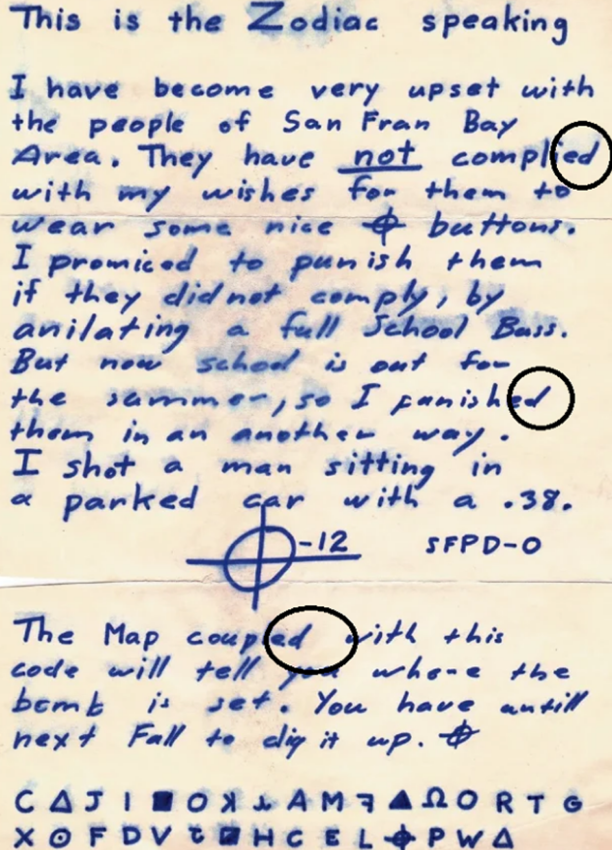 This is the Zodiac speaking
I have become very upset with
the people of San Fran Bay
Area. They have not complied
with my wishes for them to
wear some nice ⌖ buttons.
I promiced to punish them
if they did not comply, by
anilating a full School Buss.
But now school is out for
the summer, so I punished
them in an another way.
I shot a man sitting in
a parked car with a .38.
⌖-12 SFPD-0
The Map coupled with this
code will tell you where the
bomb is set. You have untill
next Fall to dig it up. ⌖
C Δ J I ■ O ʞ A M ꟻ ▲ Ω O R T G
X ⊙ F D V H C E L ⌖ P W Δ